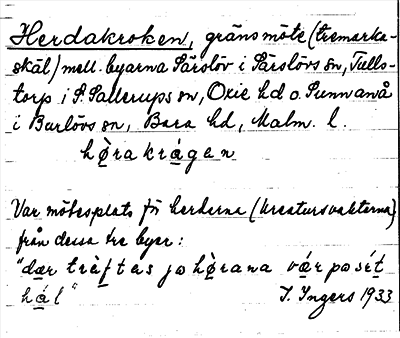 Herdakroken, gränsmöte (tremarka-
skäl) mell. byarna Särslöv i Särslövs sn, Tulls-
torp i S. Sallerups sn, Oxie hd o. Sunnanå
i Burlövs sn, Bara hd, Malm. l.
hø̀rakrạ́gen
Var mötesplats för herderna (kreatursvakterna)
från dessa tre byer:
"dær træ̀ftas jo hø̀rana vár po sét
hál"
I. Ingers 1933